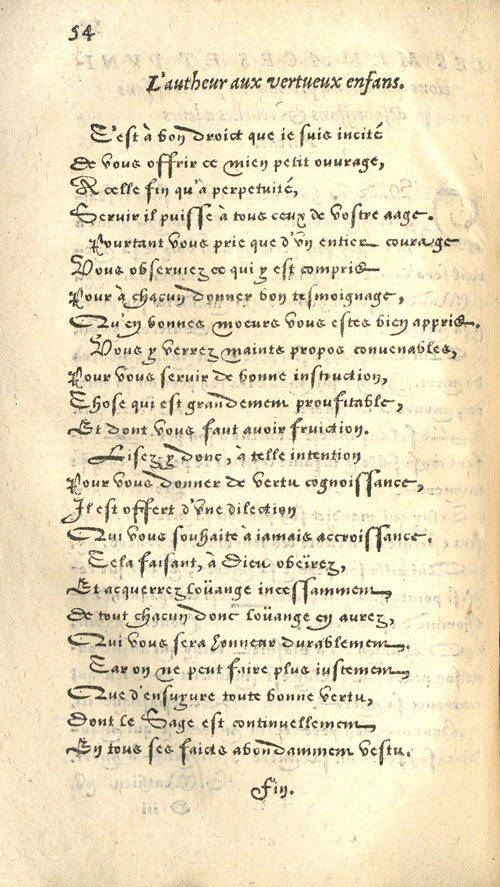 54
L'autheur aux vertueux enfans.
C'est à bon droict que ie suis incité
De vous offrir ce mien petit ouvrage,
A celle fin qu'à perpetuité,
Servir il puisse à tous ceux de vostre aage.
Pourtant vous prie que d'vn entier courage
Vous observiez ce qui y est compris
Pour à chacun donner bon tesmoignage,
Qu'en bonnes moeurs vous estes bien appris.
Vous y verrez maints propos convenables,
Pour vous servir de bonne instruction,
Chose qui est grandement proufitable,
Et dont vous faut avoir fruiction.
Lisez-y donc, à telle intention
Pour vous donner de vertu cognoissance,
Il est offert d'vne dilection
Qui vous souhaite à iamais accroissance.
Cela faisant, à Dieu obeïrez,
Et acquerrez loüange incessamment,
De tout chacun donc loüange en aurez,
Qui vous sera honneur durablement.
Car on ne peut faire plus iustement
Que d'ensuyure toute bonne vertu,
Dont le Sage est continuellement,
En tous ses faicts abondamment vestu.
Fin.